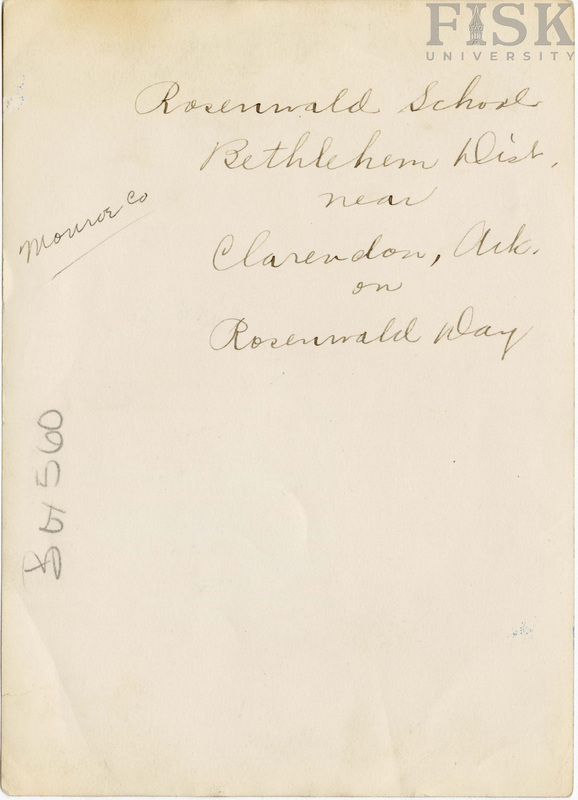 FISK
UNIVERSITY
Rosenwald School
Bethlehem Dist.
near
Clarendon, Ark.
on
Rosenwald Day
Monroe Co
560